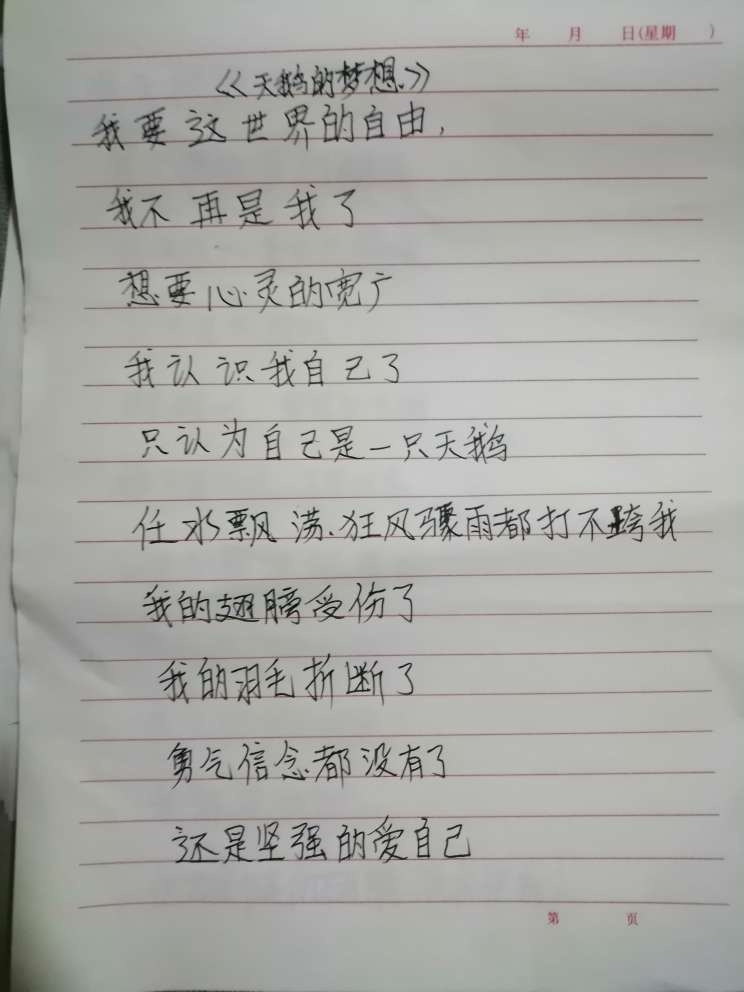 年 月 日(星期 )
《天鹅的梦想》
我要这世界的自由,
我不再是我了
想要心灵的宽广
我认识我自己了
只认为自己是一只天鹅
任水飘涝.狂风骤雨都打不跨我
我的翅膀受伤了
我的羽毛折断了
勇气信念都没有了
还是坚强的爱自己
第 页